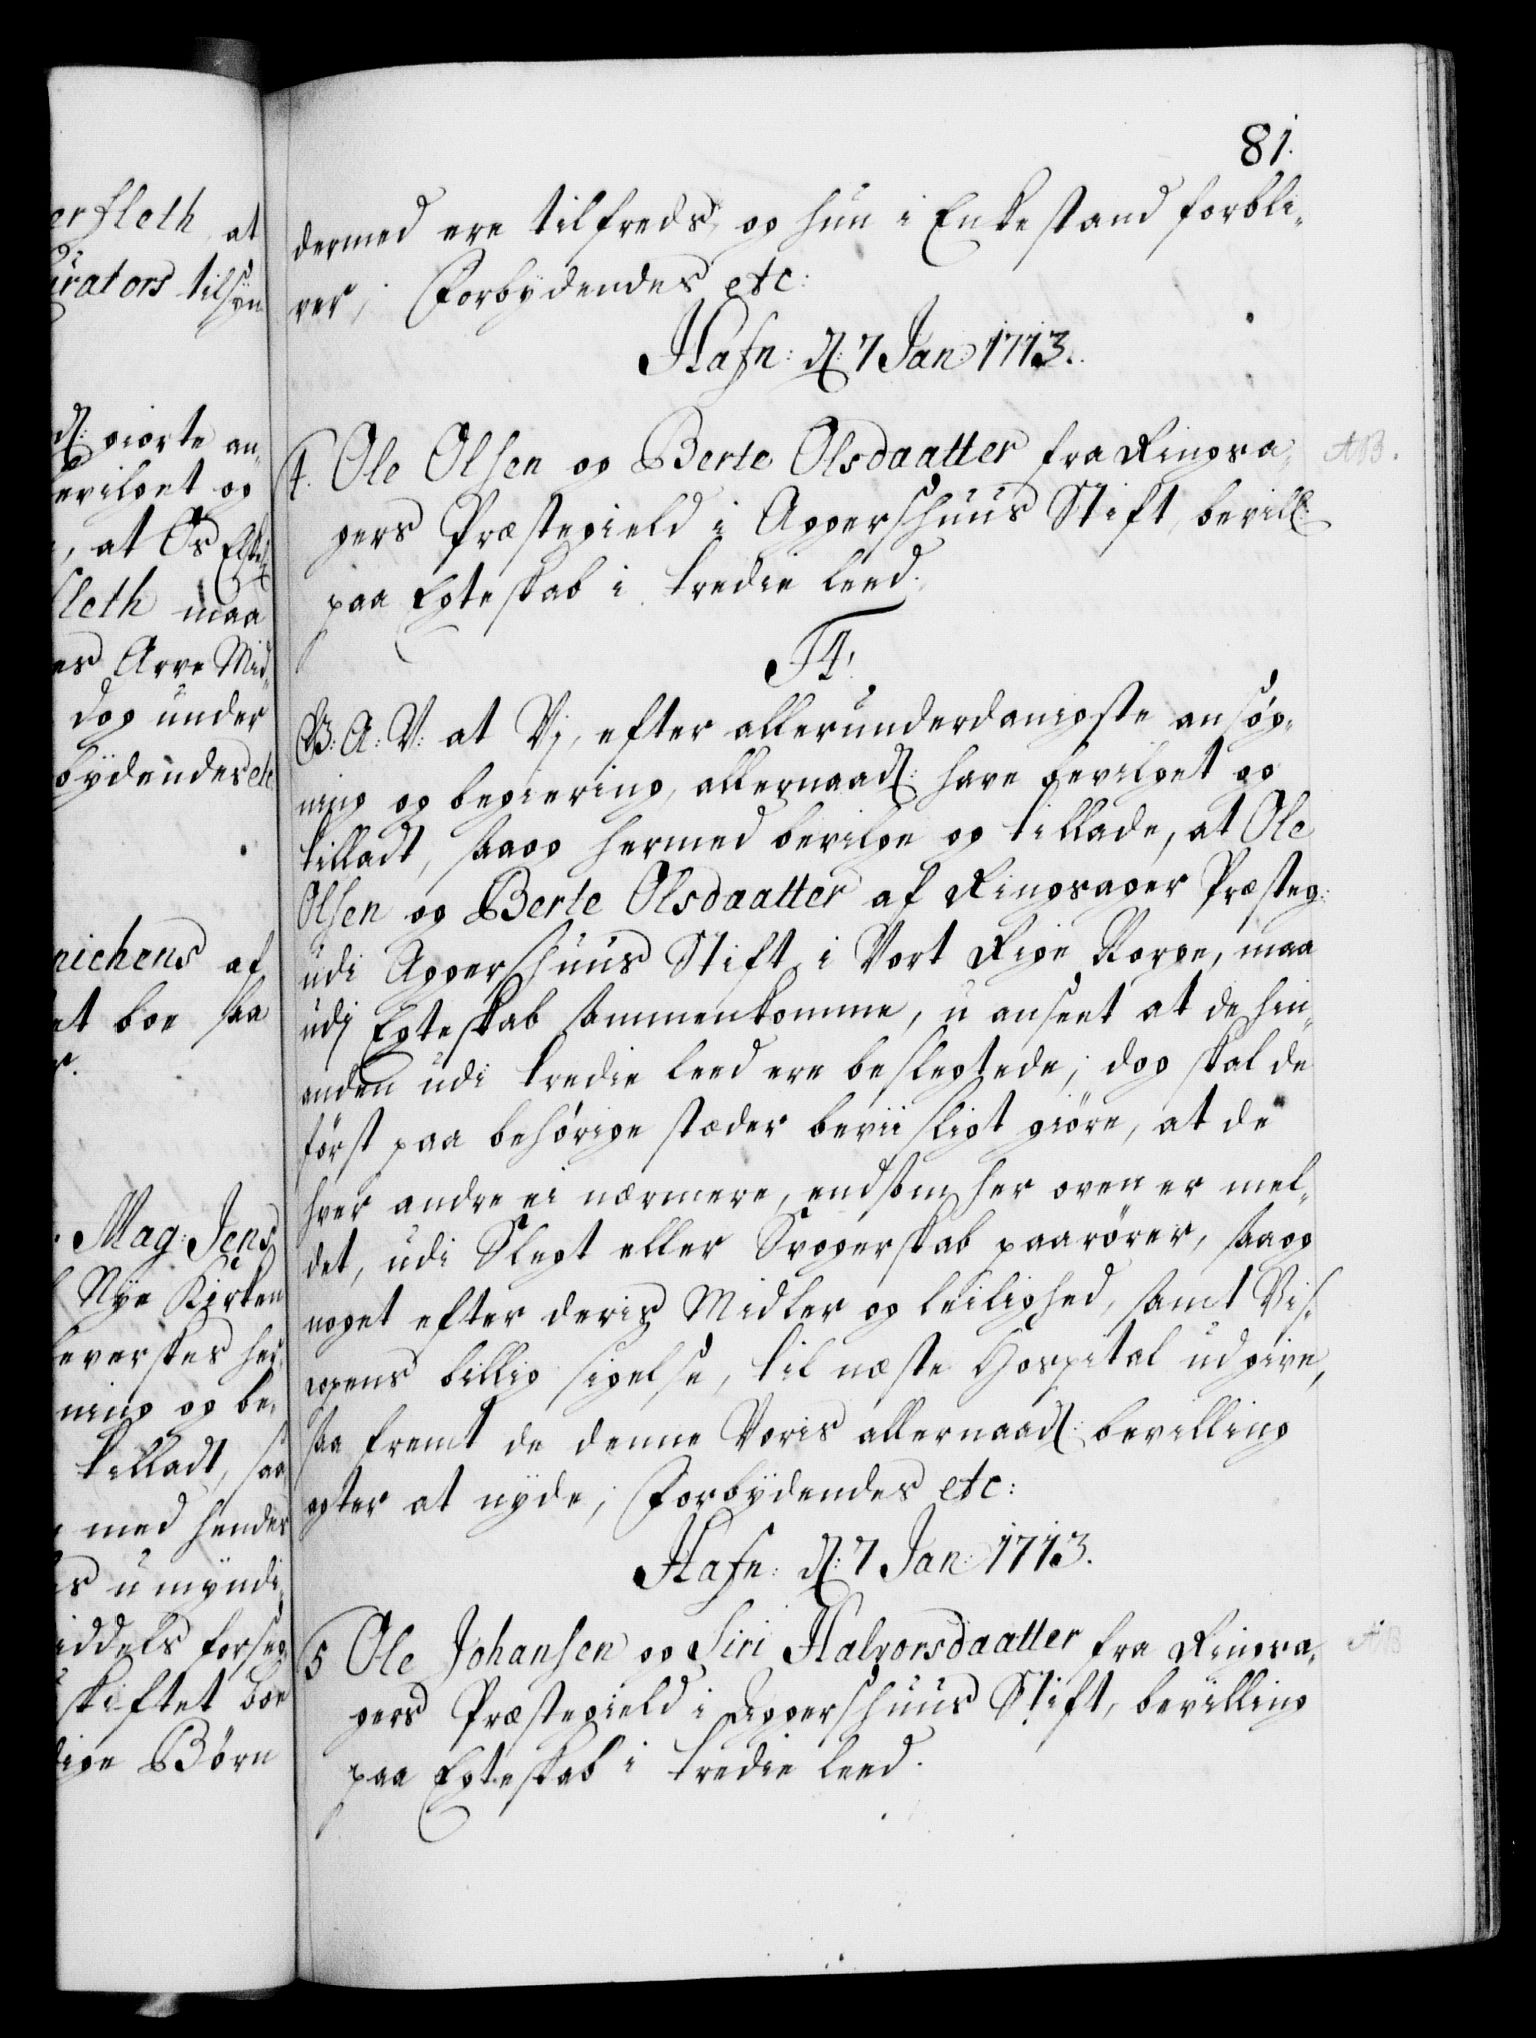 81.
dermed ere tilfreds, og hun i Enkestand forbli-
ver; Forbydendes etc:
Hafn: d: 7 Jan: 1713.
4. Ole Olsen og Berte Olsdaatter fra Ringsa-
gers Præstegield i Aggershuus Stift, bevill:
paa Egteskab i tredie leed.
F4.
G: A: V: at Vj, efter allerunderdanigste ansøg-
ning og begiering, allernaad: have bevilget og
tilladt, saaog hermed bevilge og tillade, at Ole
Olsen og Berte Olsdaatter af Ringsager Præsteg:
udi Aggershuus Stift i Vort Rige Norge, maa
udj Egteskab sammenkomme, u anseet at de hin-
anden udi tredie leed ere beslegtede; dog skal de
först paa behørige stæder beviisligt giöre, at de
hver andre ei nærmere, end som her oven er mel-
det, udi Slegt eller Svogerskab paarörer, saaog
noget efter deris Midler og leilighed, samt Bis-
copens billig sigelse, til næste Hospital udgive,
saa fremt de denne Voris allernaad: bevilling
agter at nyde; Forbydendes etc:
Hafn: d: 7 Jan: 1713.
5 Ole Johansen og Siri Halvorsdaatter fra Ringsa-
gers Præstegield i Aggershuus Stift, bevilling
paa Egteskab i tredie leed.
AB.
AB
erfleth, at
urators tilsyn
d: giorte an-
bevilget og
, at Os Elskel:
fleth maa
es Arve Mid-
dog under
bydendes etc
nichens af
et boe saa
Mag: Jens
Nye Kirken
leverskes hen-
ning og be-
tilladt, saa
med hendes
s u myndi-
iddels forseg-
skiftet boe
dige Børn